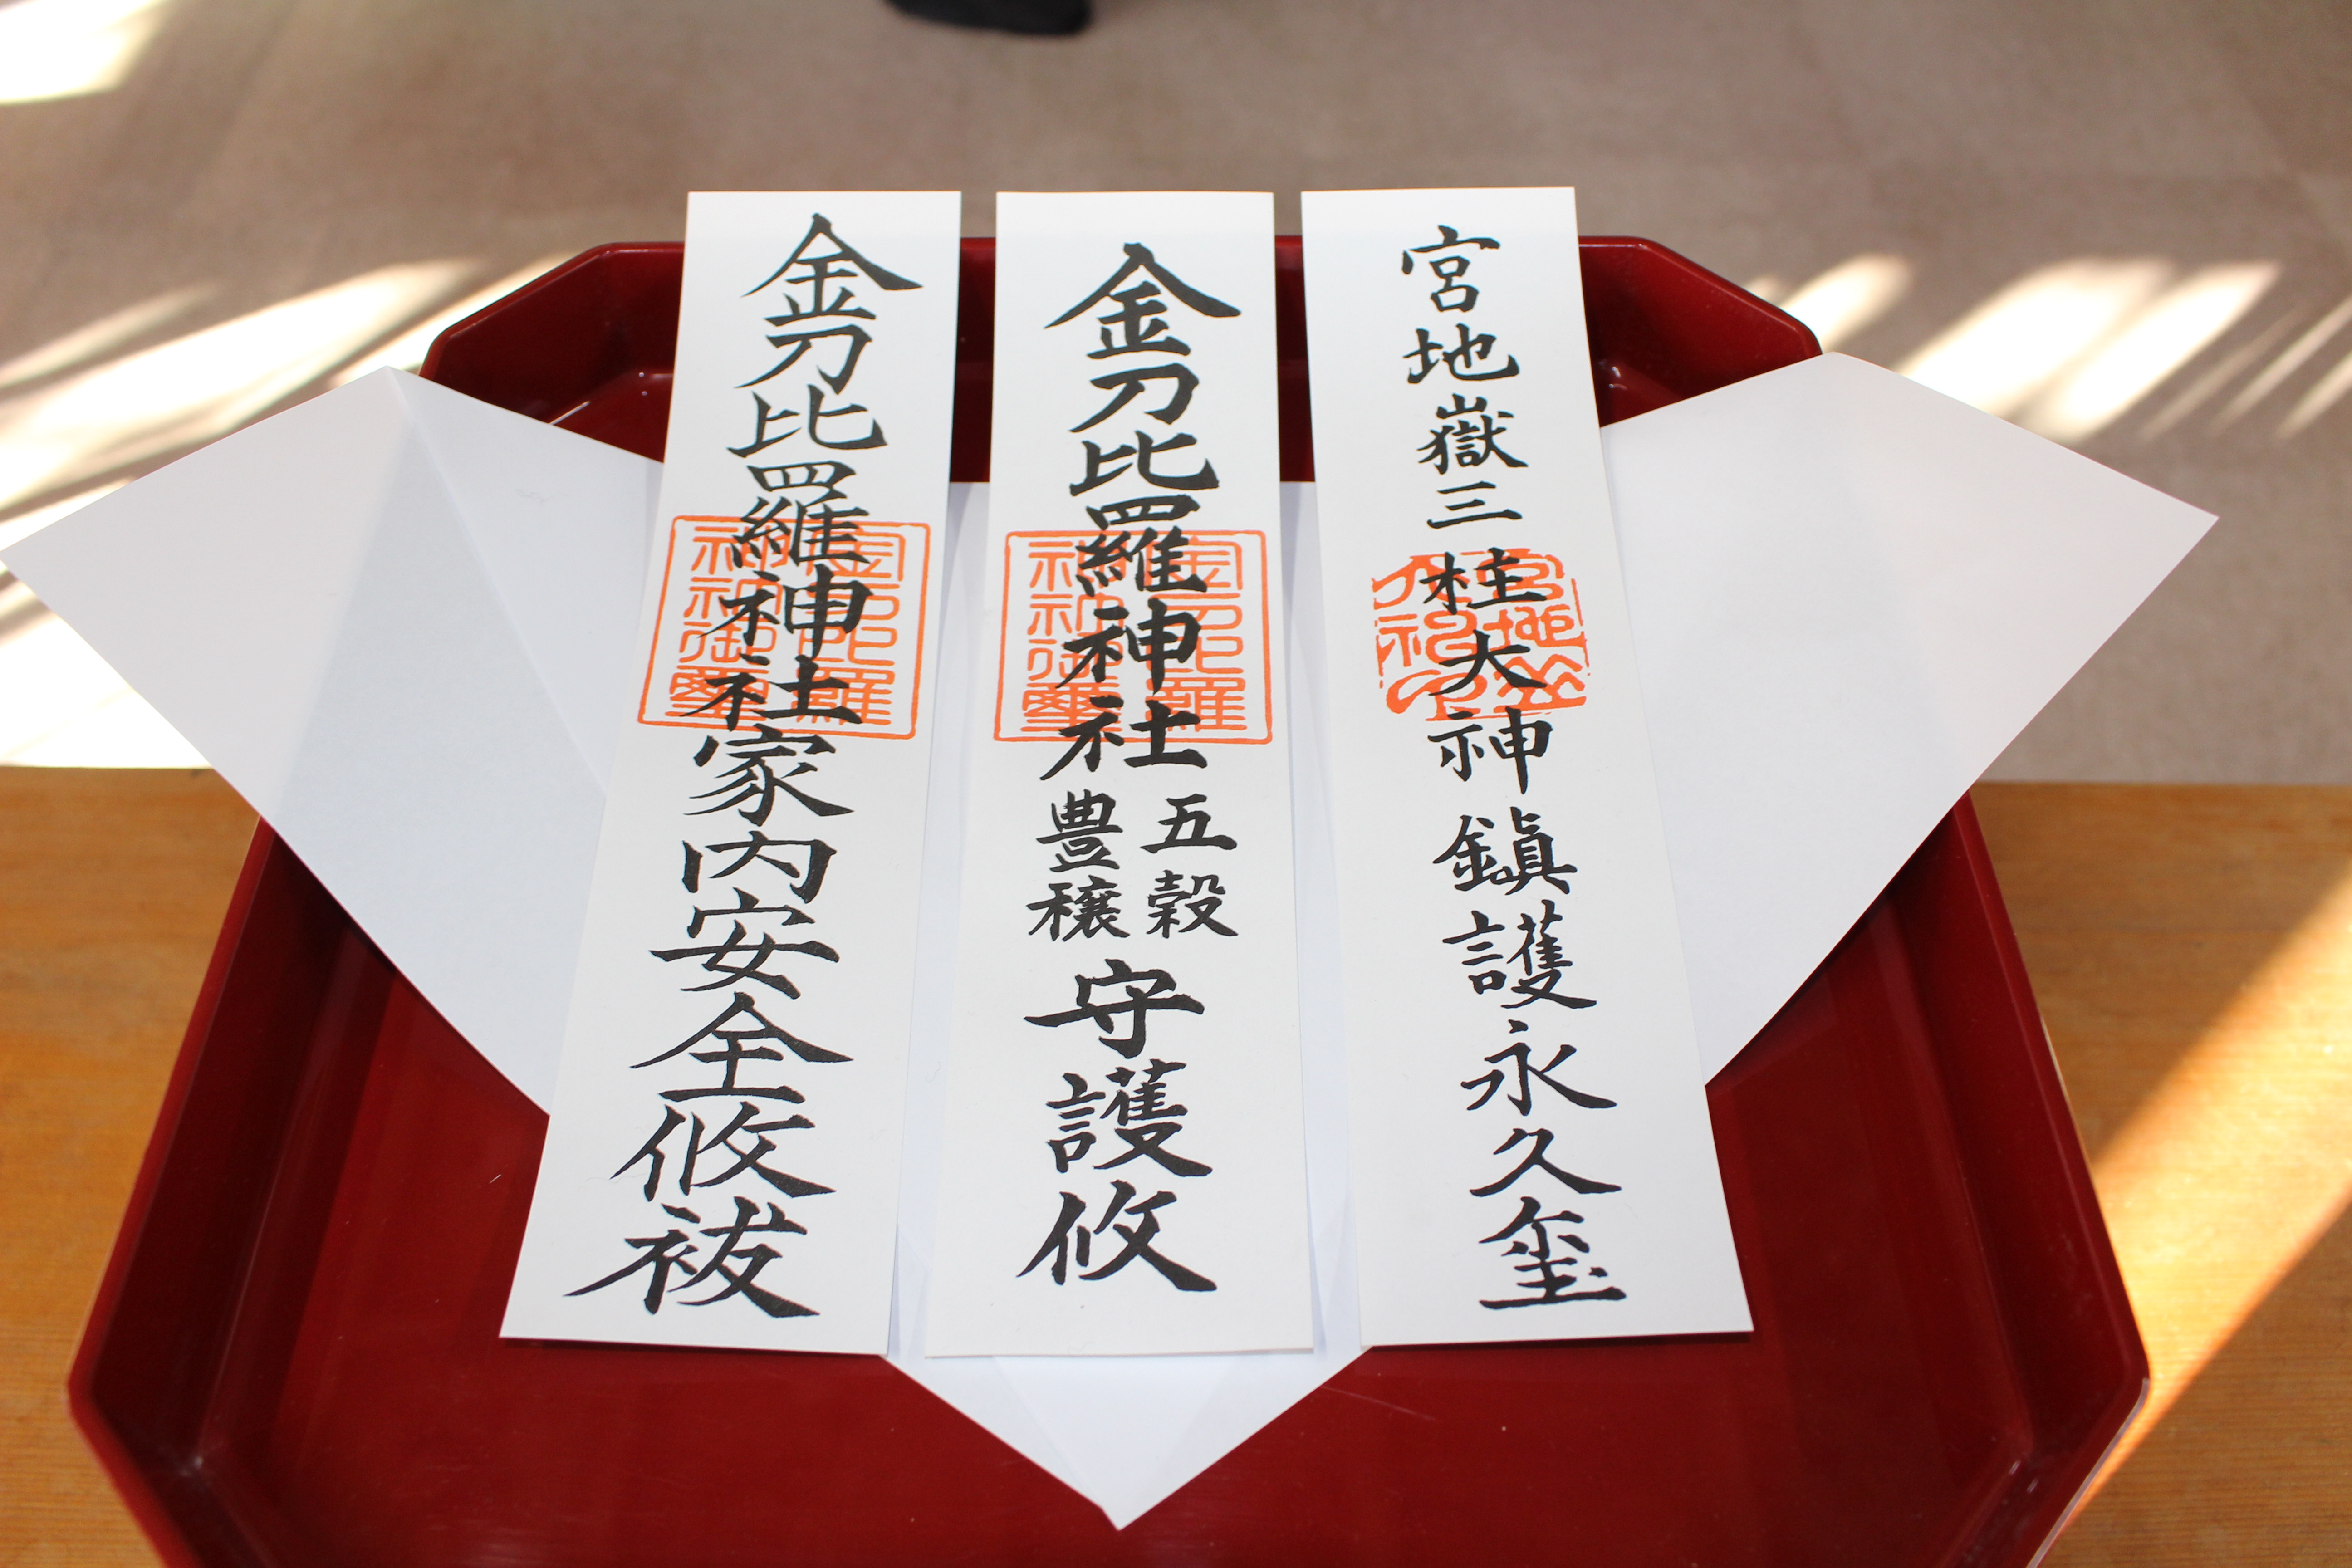 宮地嶽三柱大神鎭護永久玺
金刀比羅神社
五穀
豊穣
守護攸
金刀比羅神社家内安全攸祓